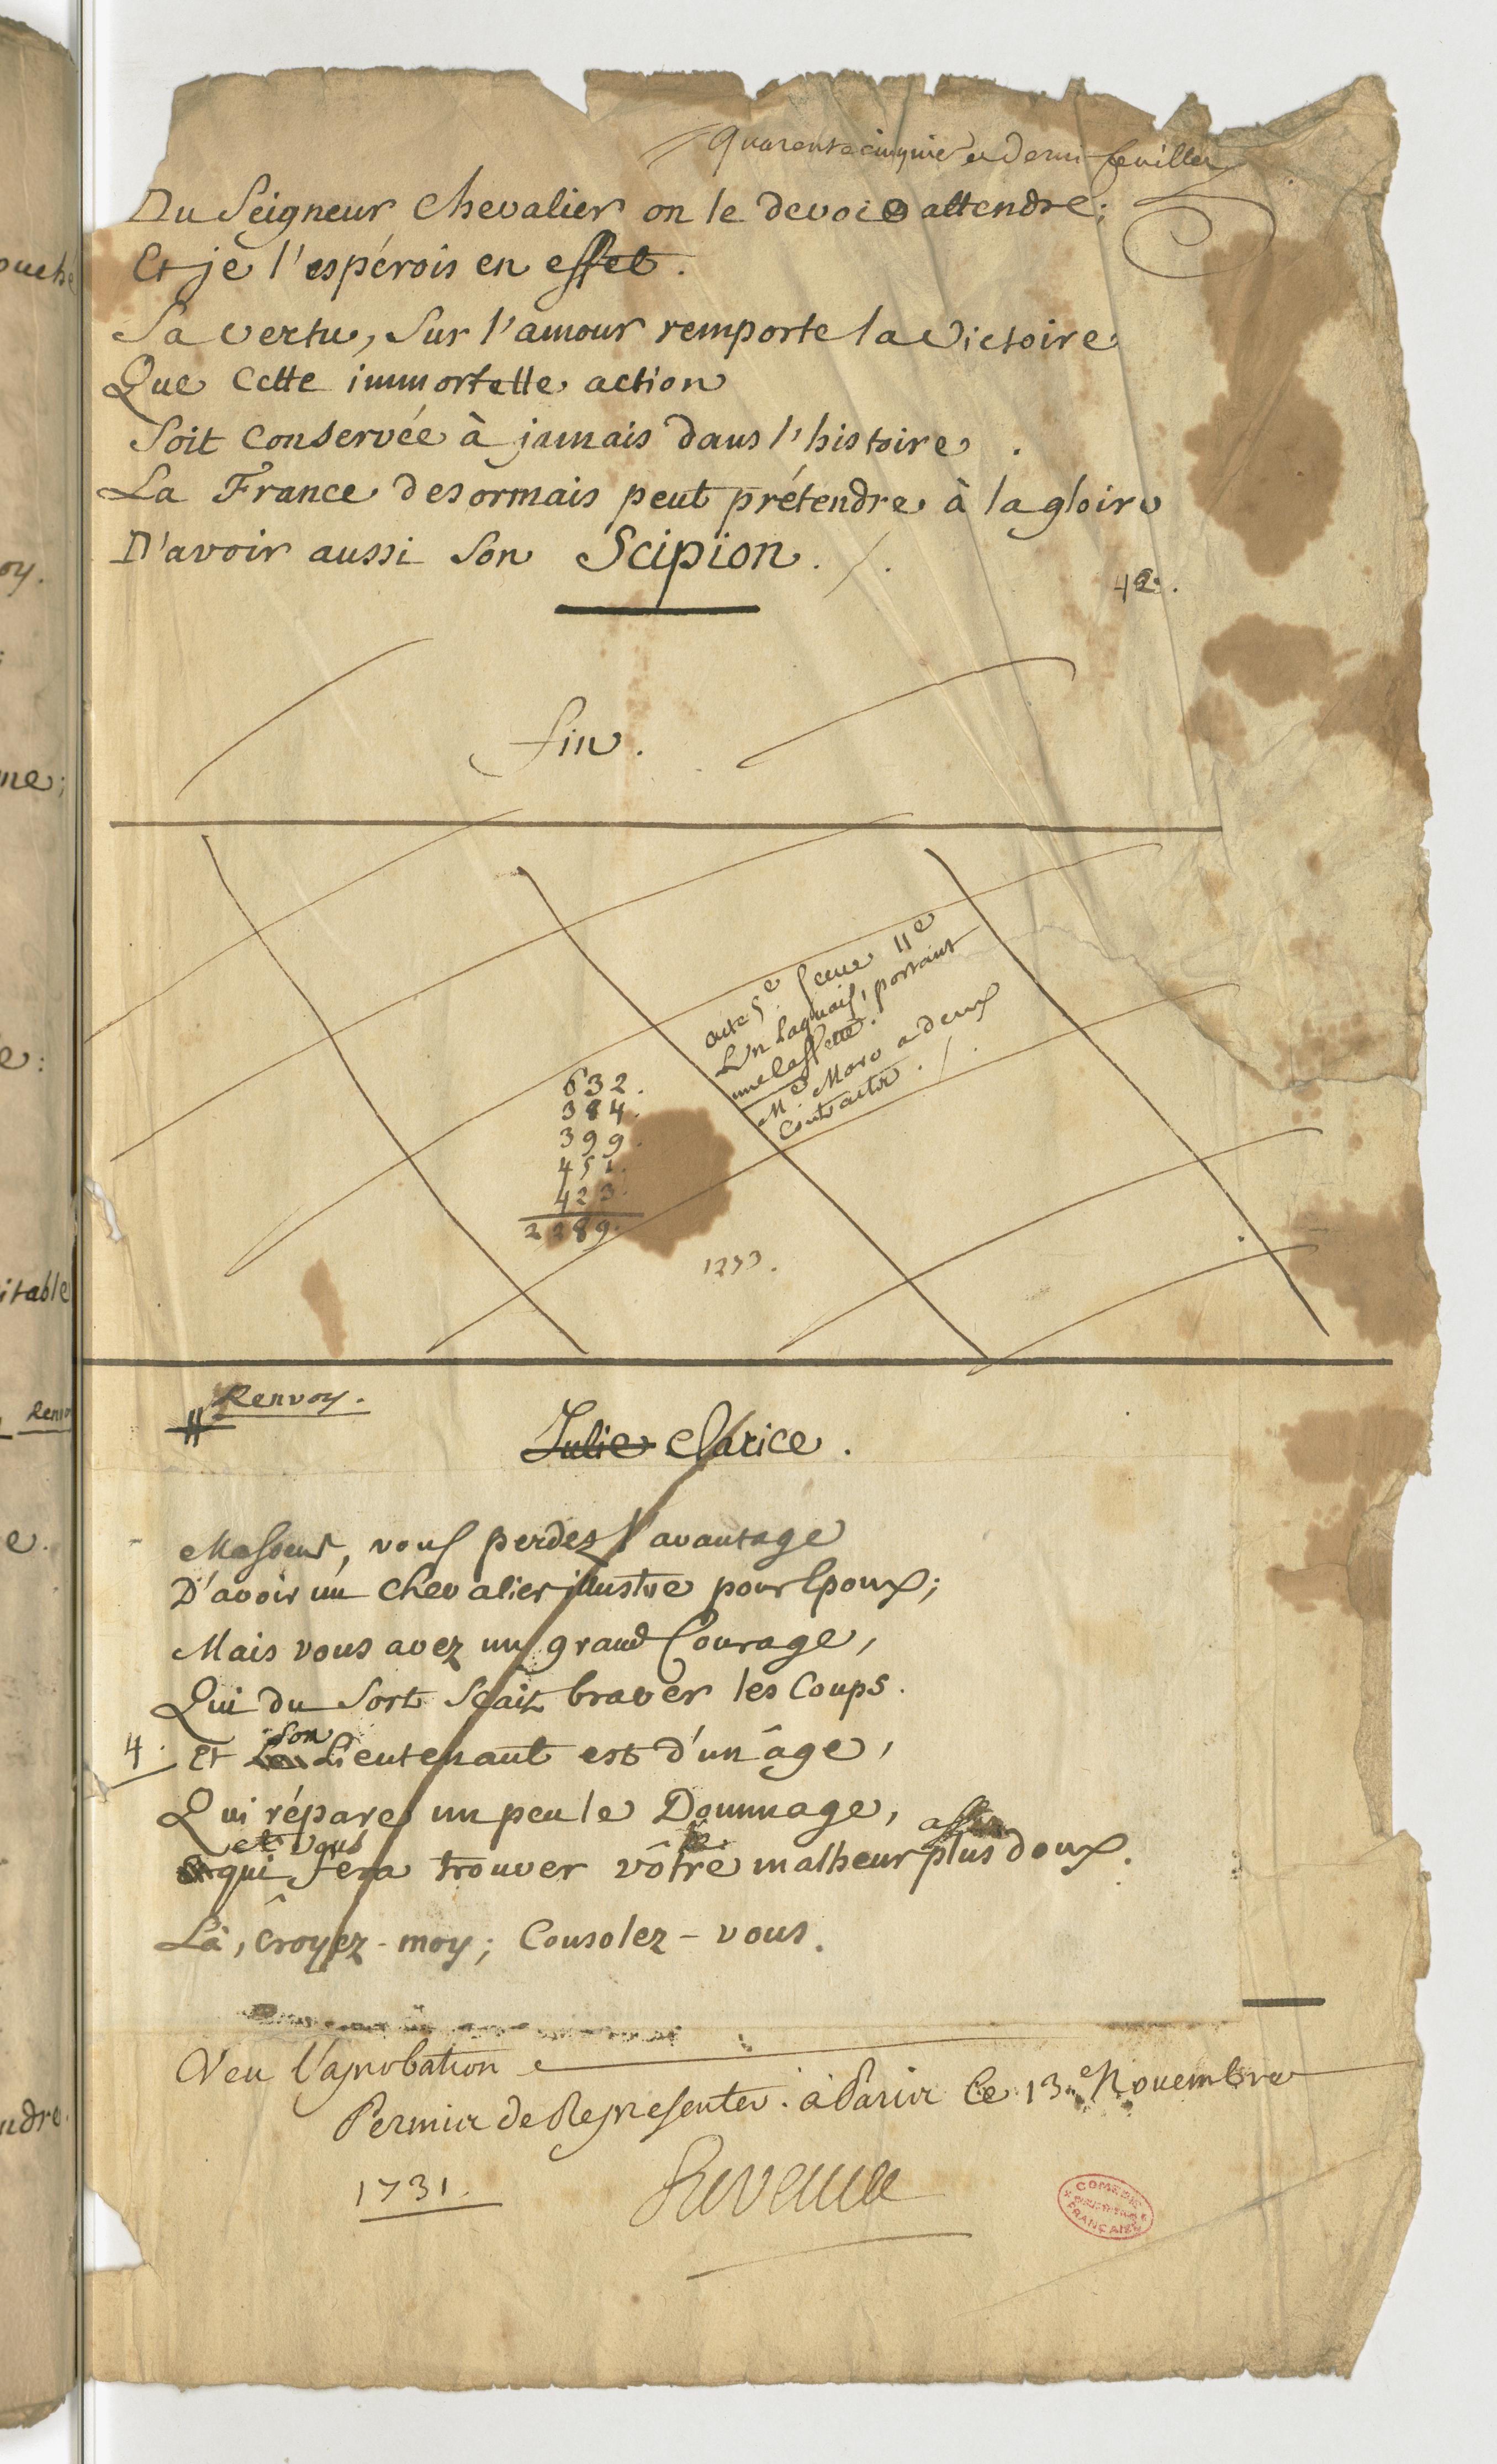 Quarente cinquie et demi feuillet
Du Seigneur Chevalier on le devoit attendre;
Et je l'espérois en effet.
Sa vertu, Sur l'amour remporte la victoire
Que Cette immortelle action
Soit Conservée à jamais dans l'histoire.
La France desormais peut prétendre à la gloire
D'avoir aussi Son Scipion./.
42.
fin.
acte 5e. Scene 11e
Un Laquais, portant
une Cassette.
Me. Marc a deux
Contracter./.
632.
384.
399.
451.
423.
2289.
1233.
Renvoy.
Julie Clarice.
Masoeur, vous perdez l'avantage
D'avoir un Chevalier illustre pour Epoux;
Mais vous avez un grand Courage,
Qui du Sort Sçait braver les Coups.
4.
Son
Et Le Lieutenant est d'un âge,
Qui répare un peu le Dommage,
et vous le
Et qui fera trouver vôtre malheur plus doux.
Là, Croyez-moy; Consolez-vous.
Veu l'aprobation
Permis de Representer. à Paris Le 13e. Novembre
1731.
COMÉDIE
FRANÇAISE
ouche
oy.
me;
e:
itable
Renvoy
e.
endre.